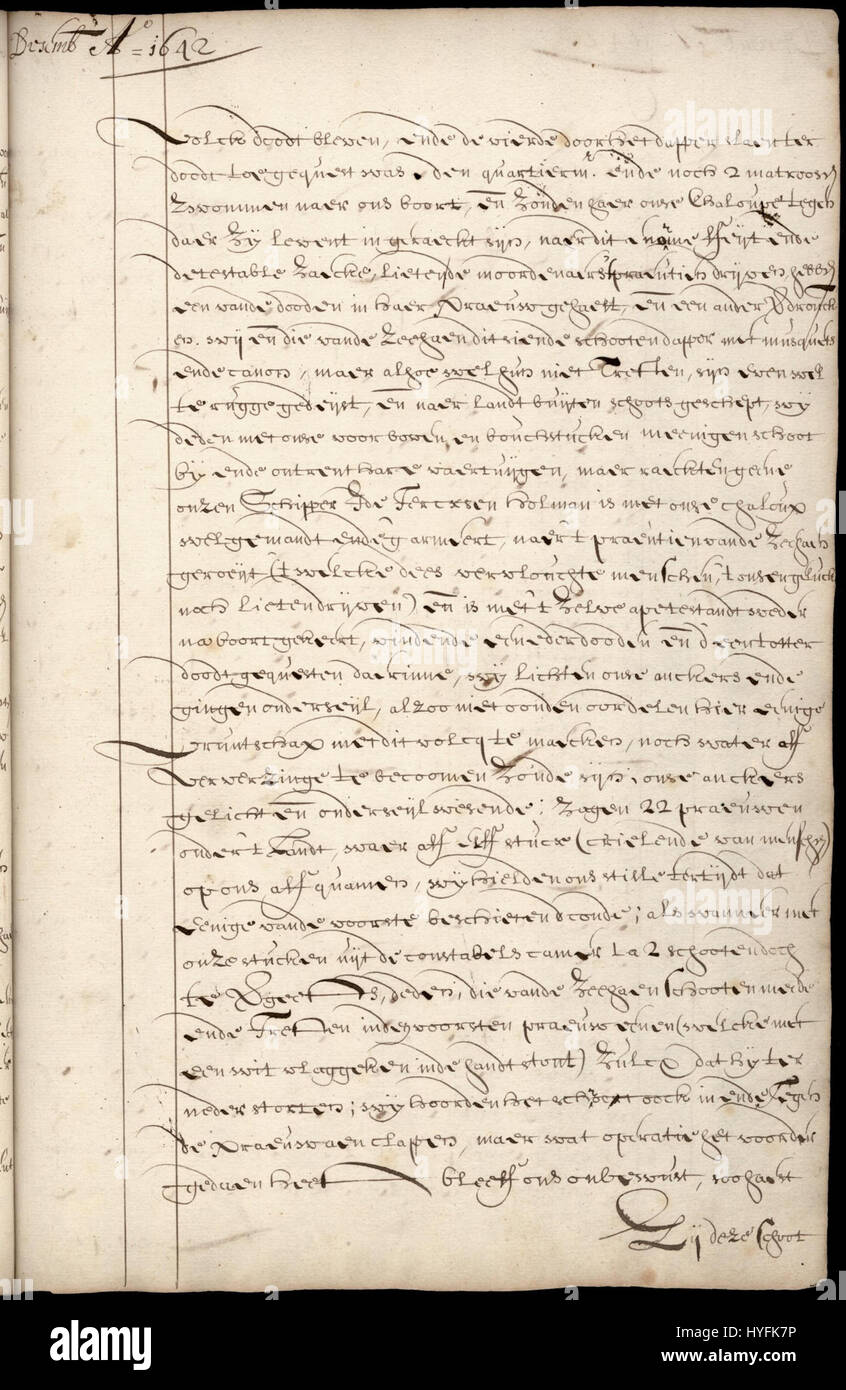 Desemb.r A.o = 1642
volck doodt bleven, ende de vierde door het dapper slaen ter
doodt toe gequest was, den quartierm.r ende noch 2 matroosen
zwommen naer ons boort, en zonden haer onse Chaloupe tegen
daer zij levent in geraeckt sijn, naer dit enorme ffeyt ende
detestable zaecke, lieten de moordenaers t praeutien drijven, hebben
een vande dooden in haer praeuw gehaelt, en een ander verdronck
en. wij en die vande Zeehaen dit siende schooten dapper met musquets
ende canon, maer alhoewel hun niet Tretten, sijn evenwel
te rugge gedeijst, en naer landt buijten schoots geschept, wij
deden met onse voor boven en bouchstucken meenigen schoot
bij ende ontrent hare vaertuijgen, maer raeckten geene
onzen Schipper Ide Tercxsen Holman is met onse chaloup
wel gemandt ende g'armeert, naer t praeutien vande Zeehaen
geroeyt, (t welcke dees vervlouchte menschen, t onsen geluck
noch lieten drijven) en is met t zelve a petestandt weder
na boort gekeert, vindende een der dooden en d'een totter
doodt gequesten daer inne, wij lichten onse anckers ende
gingen onder seyl, alzoo niet conden oordelen hier eenige
vruntschap met dit volcq te maecken, noch water off
ververzinge te becoomen zoude sijn; onse anckers
gelicht en onder seyl wesende; zagen 22 praeuwen
onder t Landt, waer aff elff stucx (crielende van menschen)
op ons aff quamen, wij hielden ons stille ter tijdt dat
eenige vande voorste beschieten conde; als wanneer met
onze stucken uijt de constabels camer 1 a 2 schooten doch
te vergeefs, deden, die vande Zeehaen schooten mede
ende Tretten inde voorsten praeuw eenen (welcke met
een wit vlaggeken inde handt stont) zulcx dat hij ter
neder storten; wij hoorden het schroot oock in ende Tegen
de praeuws aen clappen, maer wat operatie het voorder
gedaen heeft bleeff ons onbewust, soo haest
Zij deze schoot
alamy
JYFK7P
alamy stock photo